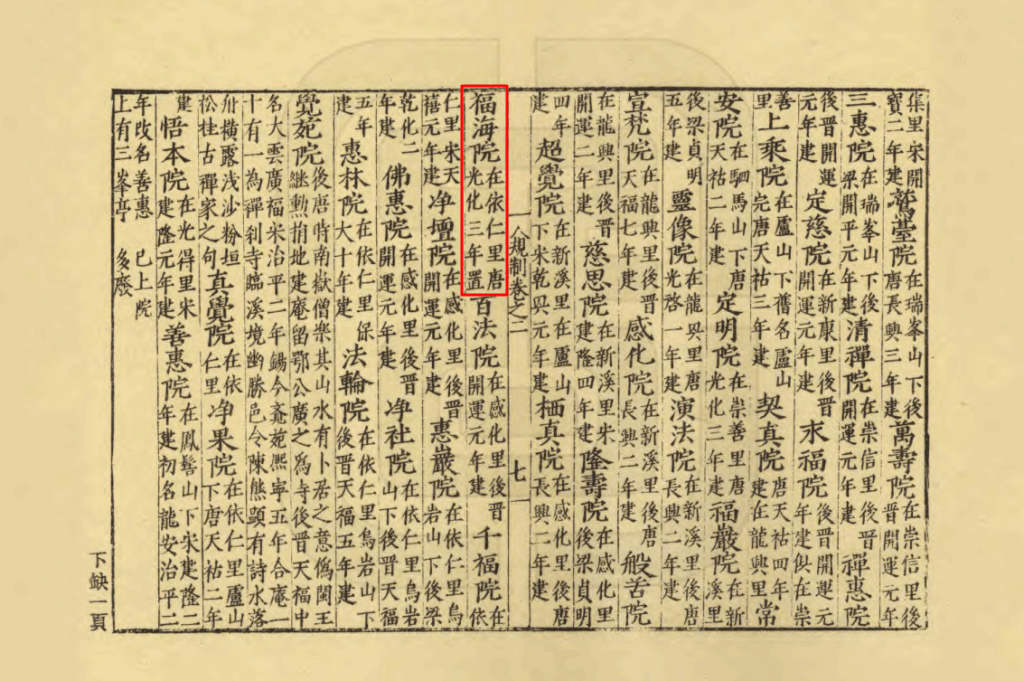 集里宋開寶二年建鷲臺院在瑞峯山下後唐長興三年建萬壽院在崇信里後晉開運元年
三惠院在瑞峯山下後梁開平元年建清禪院在崇信里後晉開運元年建禪惠院
後晉開運元年建定慈院在新康里後晉開運元年建求福院後晉開運元年建俱在崇
善里上乘院在盧山下舊名盧山完唐天祐三年建契真院唐天祐四年建在龍興里常
安院在駟馬山下唐天祐二年建定明院在崇善里唐光化三年建福嚴院在新溪里
後梁貞明五年建靈像院在龍興里唐光啓一年建演法院在新溪里後唐長興二年建
宣梵院在龍興里後晉天福七年建感化院在新溪里後唐長興二年建般若院
在龍興里後晉開運二年建慈思院在新溪里宋建隆四年建隆壽院在感化里後梁貞明
四年建超覺院在新溪里在盧山下宋乾興元年建栖真院在感化里後唐長興二年建
規制卷之二 七
福海院在依仁里唐光化三年置百法院在感化里後晉開運元年建千福院在依
仁里宋天禧元年建净壇院在感化里後晉開運元年建惠嚴院在依仁里烏岩山下後梁
乾化二年建佛惠院在感化里後晉開運元年建净社院在依仁里烏岩山下後晉天福
五年建惠林院在依仁里保大十年建法輪院在依仁里烏岩山下後晉天福五年建
覺苑院後唐時南嶽僧樂其山水有卜居之意僞閩王継勲捐地建庵留鄂公廣之爲寺後晉天福中
名大雲廣福宋治平二年錫今斋苑熈寧五年合庵一十有一為禪刹寺臨溪境幽勝邑令陳熊顕有詩水落
舟橫露浅沙粉垣松桂古禪家之句真覺院在依仁里净果院在依仁里盧山下唐天祐二年
建悟本院在光得里宋建隆元年建善惠院在鳳髻山下宋建隆二年建初名龍安治平二
年改名善惠上有三峯亭 已上院多廢
下缺一頁